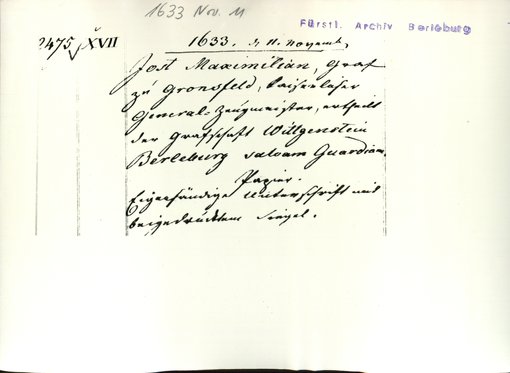 1633 Nov. 11
Fürstl. Archiv Berleburg
2475 XVII
1633. d. 11. Novemb.
Jost Maximilian, Graf
zu Gronsfeld, Kaiserlicher
General-Zeugmeister, ertheilt
der Grafschaft Wittgenstein
Berleburg salvam Guardiam.
Papier.
Eigenhändige Unterschrift mit
beigedrücktem Siegel.